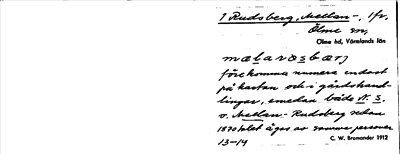 1 Rudsberg, Mellan-, 1/4,
Ölme sn,
Ölme hd, Värmlands län
mælanosbærj
förekomma numera endast
på kartan och i gårdshand-
lingar, emedan både N. S.
o. Mellan- Rudsberg sedan
1870 talet äges av samma personer
13-14 C. W. Bromander 1912